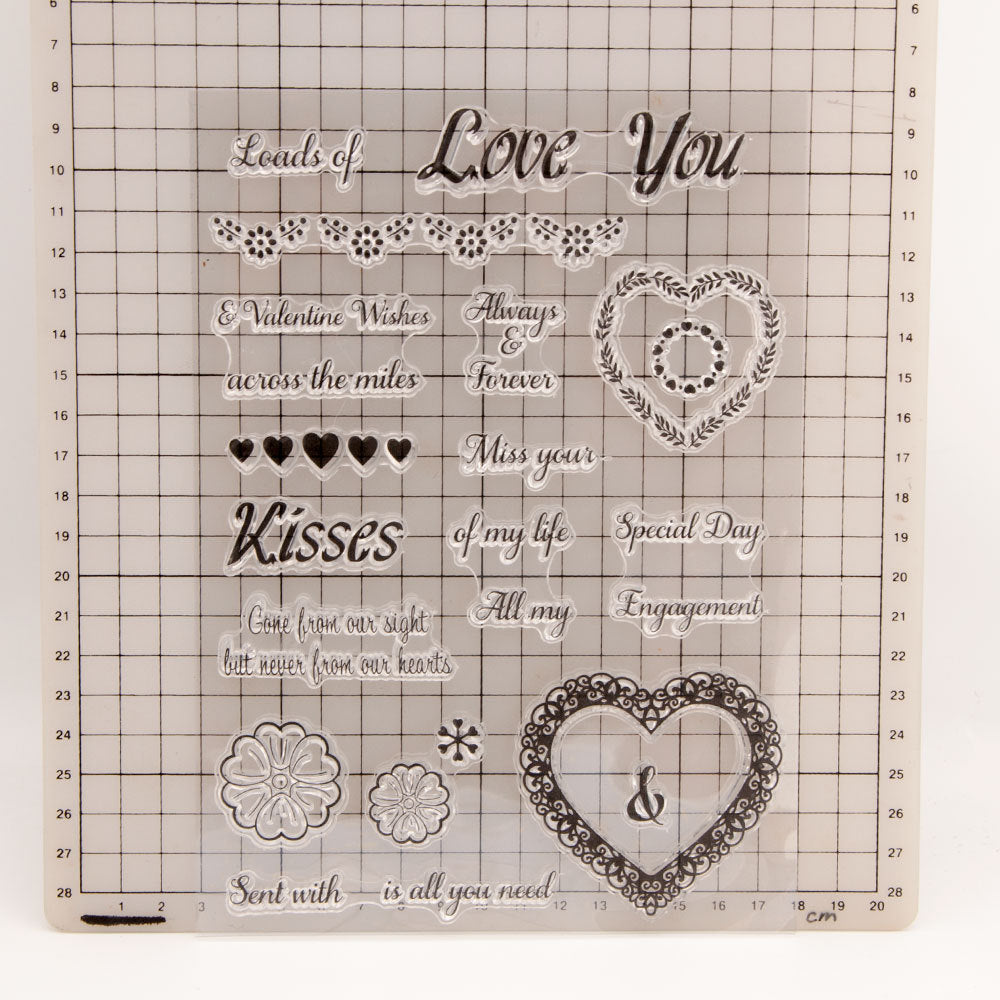 6 6
7 7
8 8
9 9
10 10
11 11
12 12
13 13
14 14
15 15
16 16
17 17
18 18
19 19
20 20
21 21
22 22
23 23
24 24
25 25
26 26
27 27
28 28
Loads of Love You
& Valentine Wishes
across the miles
Always
&
Forever
Miss your
Kisses
of my life
Special Day
All my
Engagement
Gone from our sight
but never from our hearts
&
Sent with is all you need
1 2 3 12 13 15 16 17 18 19 20
cm